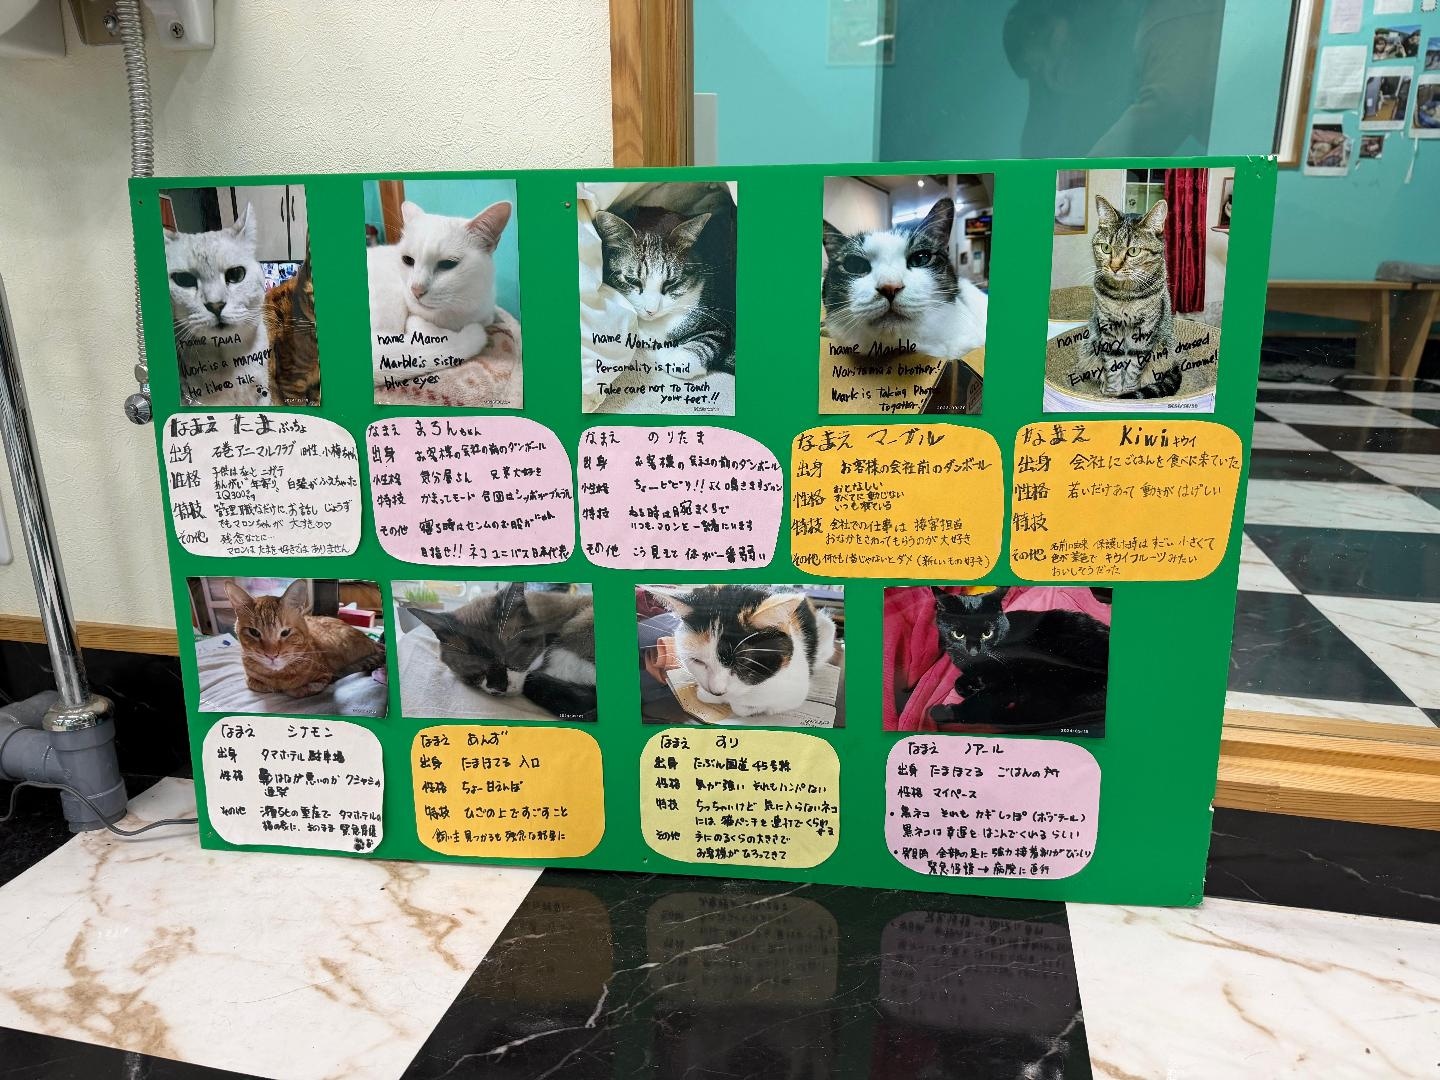 name TAMA
Work is a manager
He likes talk
name Maron
Marble's sister
blue eyes
name Noritama
Personality is timid
Take care not To Touch
your feet!!
name Marble
Noritama's brother!
Work is Taking Photo
Together!
name kiwi
Very shy
Every day being chased
by Caramel
なまえ たまぶちょ
出身 石巻アニマルクラブ 旧姓 小梅ちゃん
性格 子供はなと ニガテ
特技 管理職なだけに お話し じょうず
でもマロンちゃんが 大すき♡♡
その他 残念なことに…
マロンは たまを好きではありません
なまえ まろん
出身 お客様の会社の前のダンボール
性格 気分屋さん 兄弟大好き
特技 かまってモード 合図はシッポ
その他 寝る時はセンムのお股がにゃん
目指せ!! ネコ ユニバース日本代表
なまえ のりたま
出身 お客様の会社の前のダンボール
性格 ちょービビリ!! よく鳴きます
特技 ねる時は腕まくらで
いつもマロンと一緒にいます
その他 こう見えて 体が一番弱い
なまえ マーブル
出身 お客様の会社前のダンボール
性格 おとなしい
すべてに動じない
いつも寝ている
特技 会社での仕事は 接客担当
おなかをさわってもらうのが大好き
その他 何でも1番じゃないとダメ(新しいもの好き)
なまえ Kiwii キウイ
出身 会社にごはんを食べに来ていた
性格 若いだけあって動きがはげしい
特技
その他 名前の由来 保護した時は すごい小さくて
色が茶色で キウイフルーツみたい
おいしそうだった
なまえ シナモン
出身 タマホテル駐車場
性格 鼻はなが悪いのか クシャミの
連発
その他
なまえ あんず
出身 たまほてる 入口
性格 ちょー甘えんぼ
特技 ひざの上ですごすこと
飼い主見つかるも残念な結果に
なまえ すり
出身 たぶん国道45号線
性格 気が強い それもハンパない
特技 ちっちゃいけど 気に入らないネコ
には 猫パンチを連打でくらわせる
その他 手にのるくらの大きさで
お客様がひろってきて
なまえ ノアール
出身 たまほてる ごはんの所
性格 マイペース
・黒ネコ それも カギしっぽ(ボブテール)
黒ネコは 幸運を はこんでくれる らしい
・発見時 全部の足に強力接着剤がびっしり
緊急保護→病院に直行